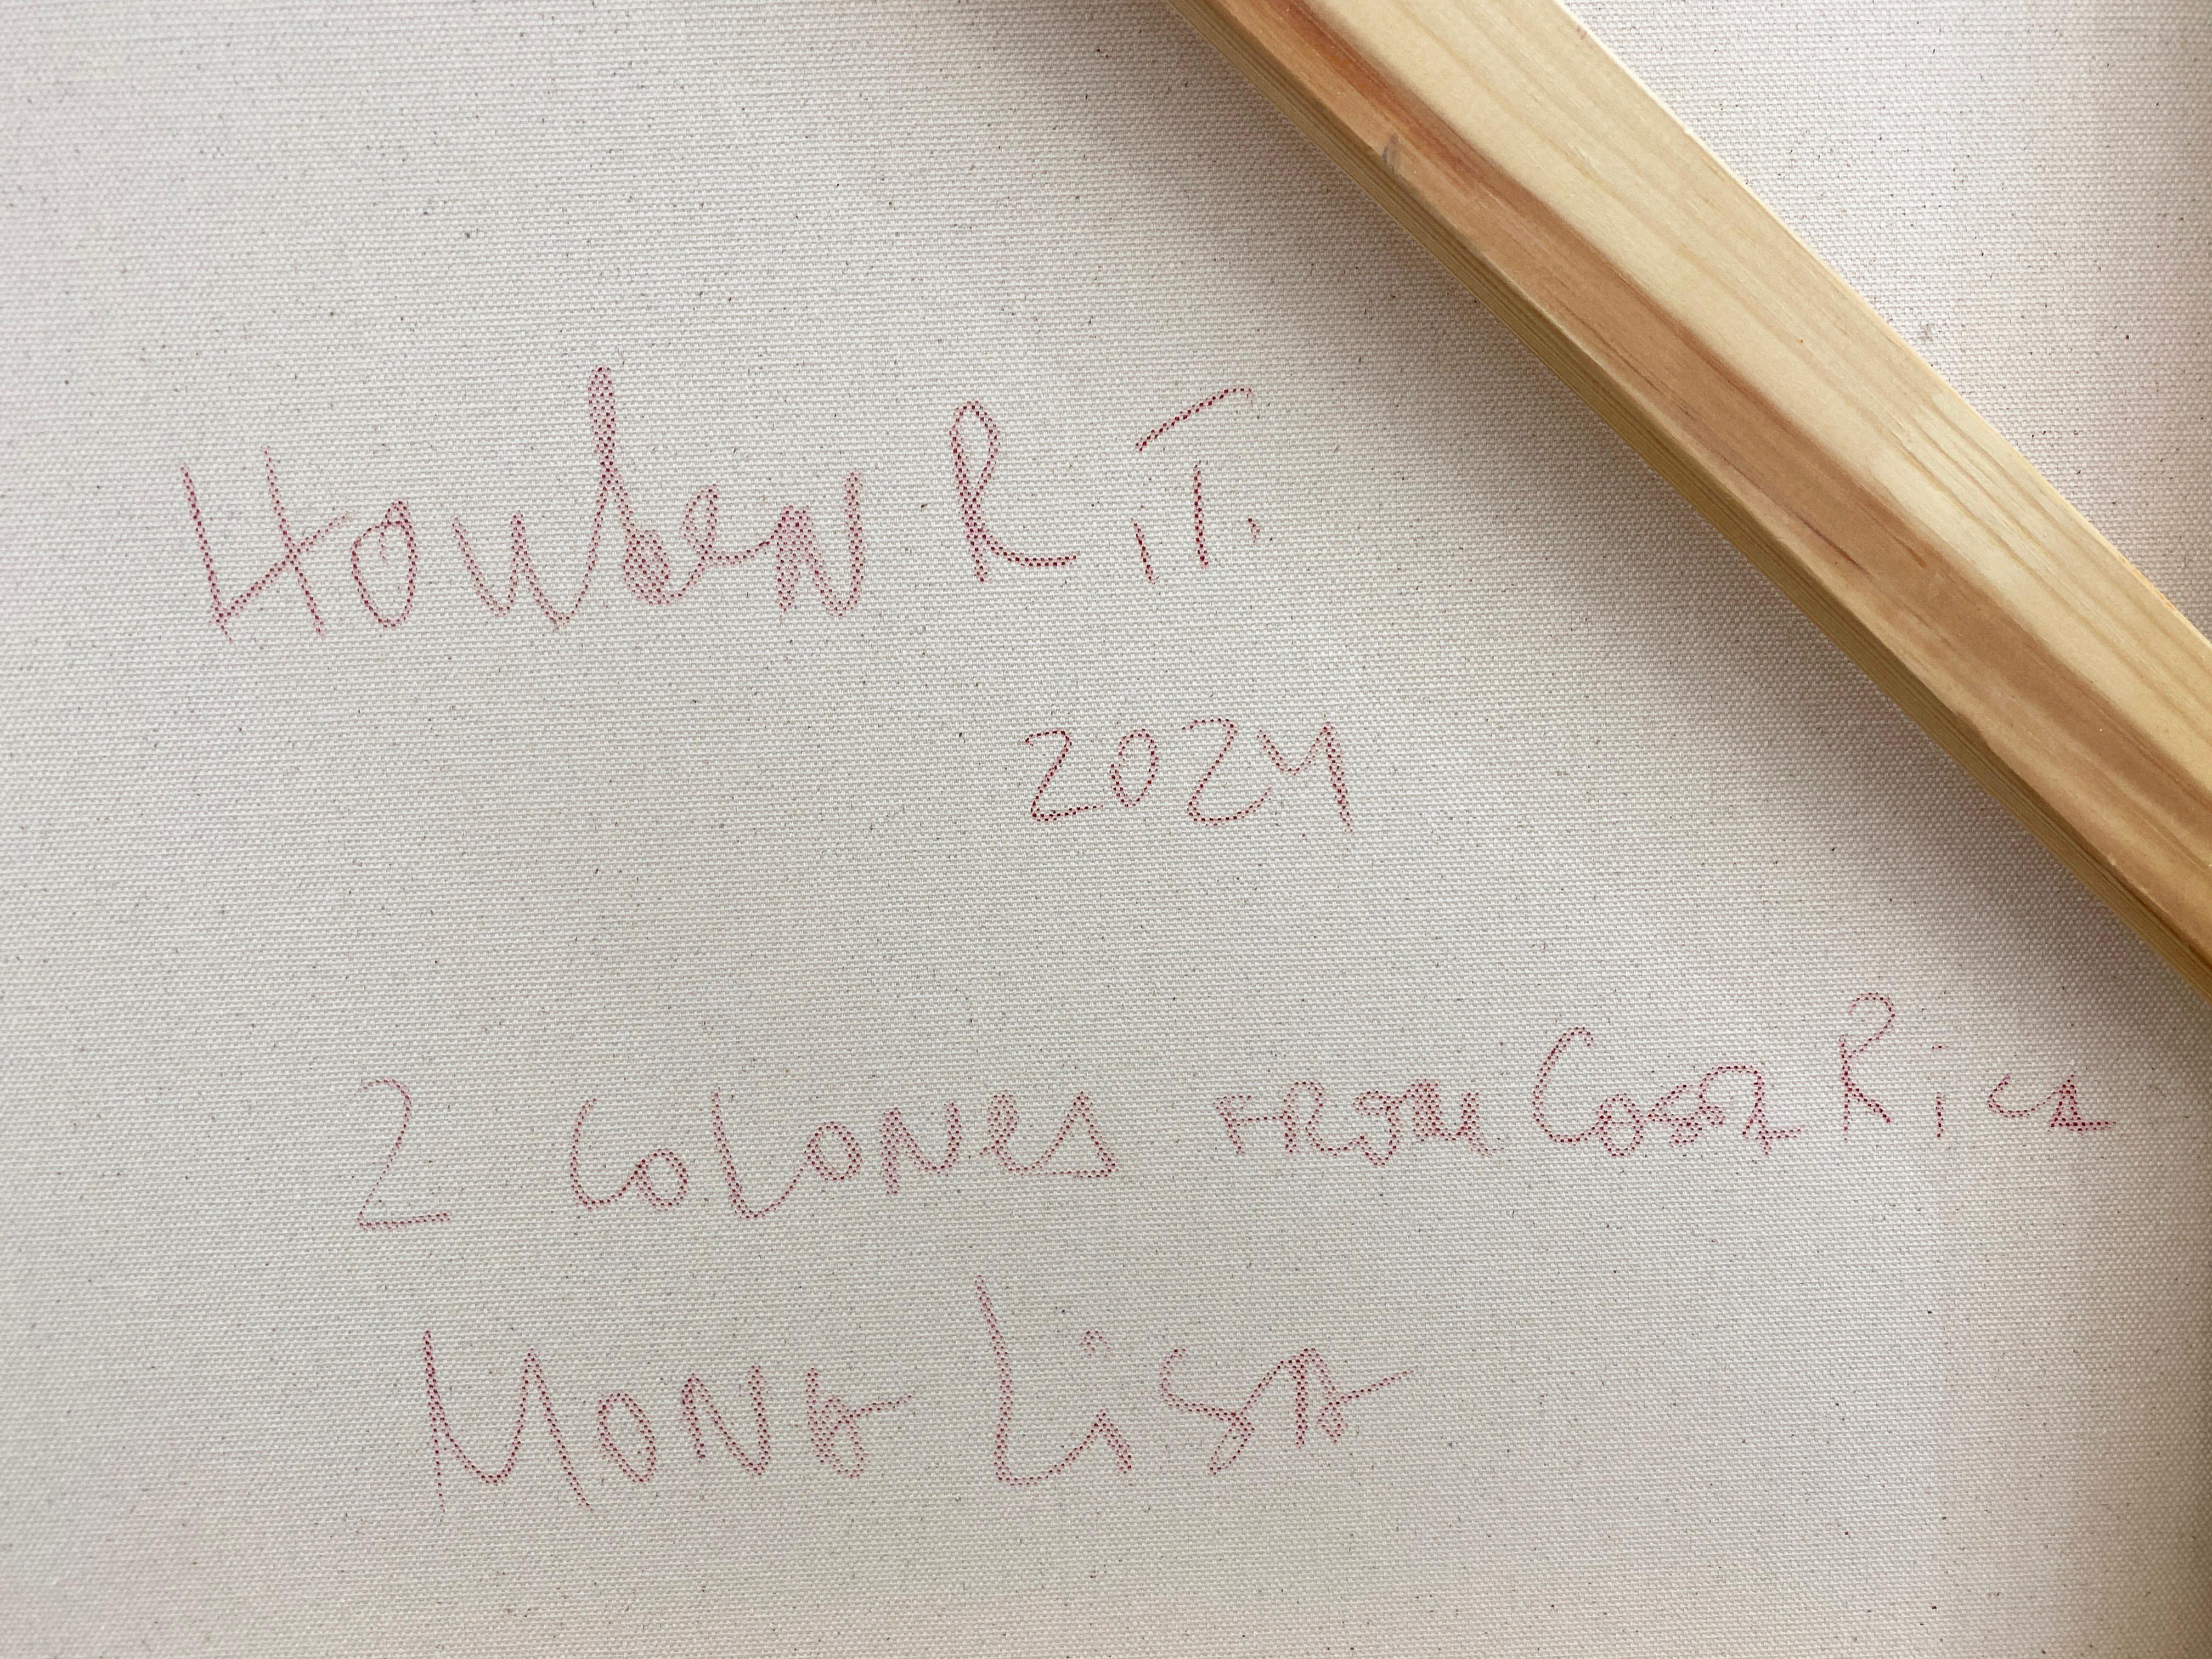 Houben R.T.
2024
2 Colones from Costa Rica
Mona Lisa